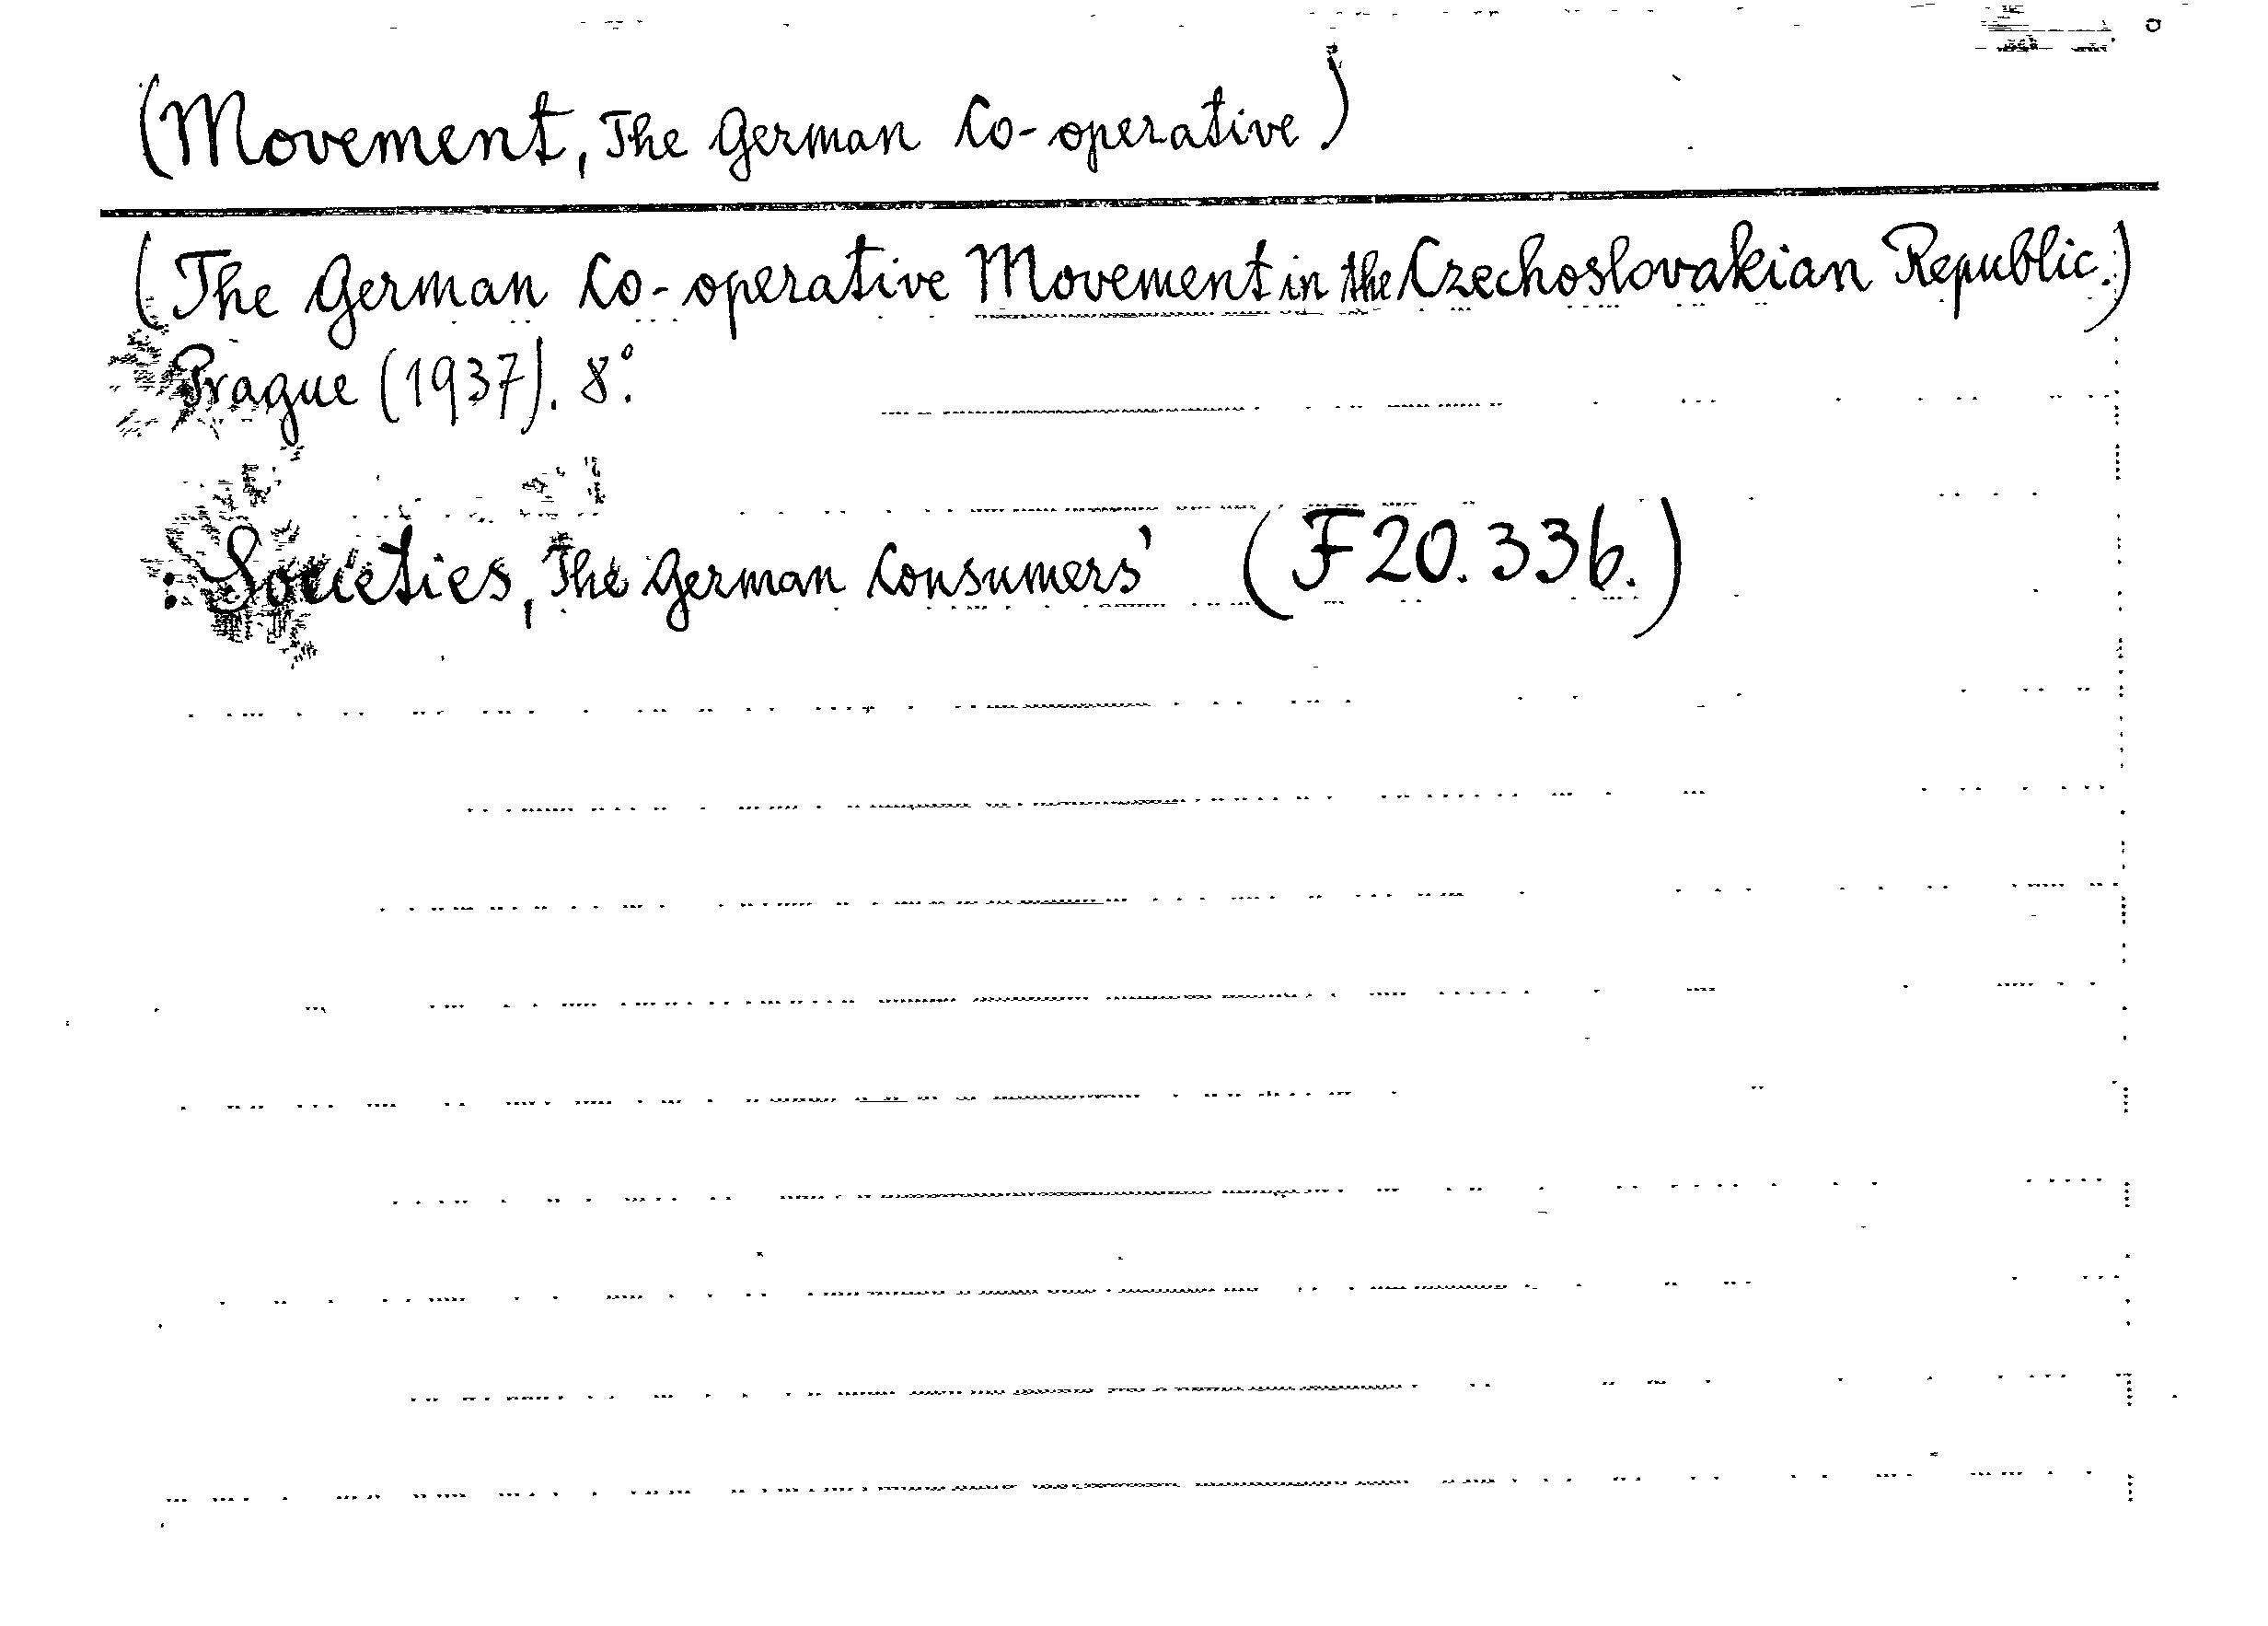 (Movement, The German Co-operative)
(The German Co-operative Movement in the Czechoslovakian Republic.)
Prague (1937). 8°.
: Societies, The German Consumers' (F 20.336.)